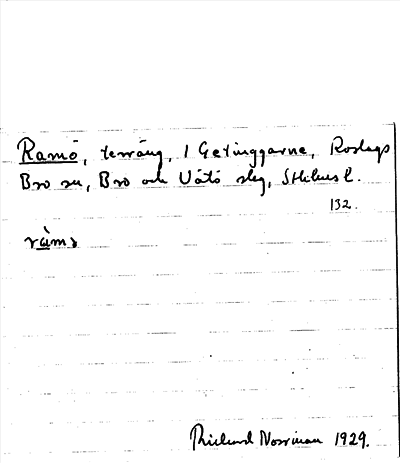 Ramö, terräng, i Getinggarne, Roslags
Bro sn, Bro och Vätö slg, Sthlms l.
132.
ràmə
Rikard Norrman 1929.